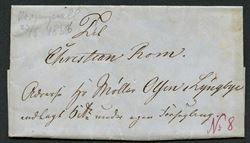 Til
Christian Rom.
Adresse Hr Møller Olsen i Lyngbye
indlagt
under egen Forsegling
No 8